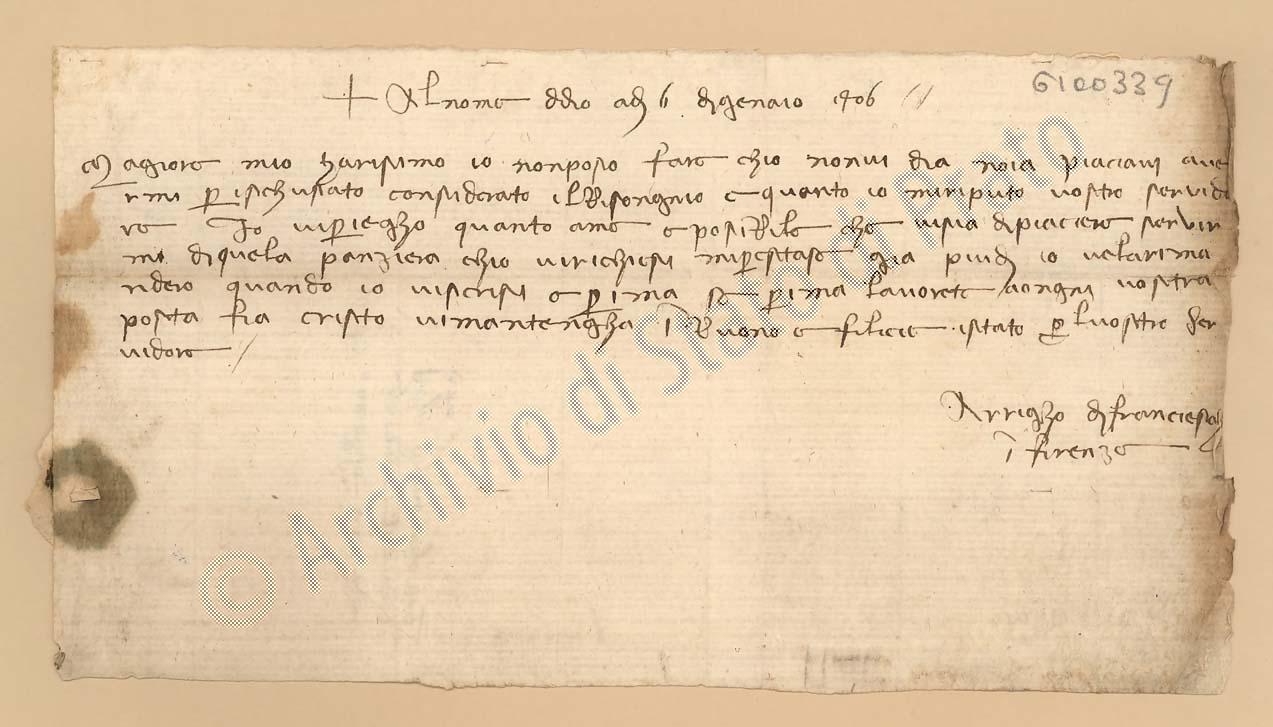 6100339
+ Al nome d dio adj 6 di gienaio 1406
Magiore mio charisimo io nonposo fare chio nonvi dia noia piaciavi ave
rmi per ischusato considerato ilbisongnio e quanto io miriputo vostro servido
re Io vipriegho quanto ame e posibile che visia dipiacere servir
mi diquela panziera chio virichiesi inprestase gia piudj io velarima
ndero quando io viscrisi e prima se prima lavorete aongni vostra
posta sia cristo vimantengha i buono e filicie istato per lvostro ser
vidore /
Arrigho di franciescho
i firenze
© Archivio di Stato di Prato